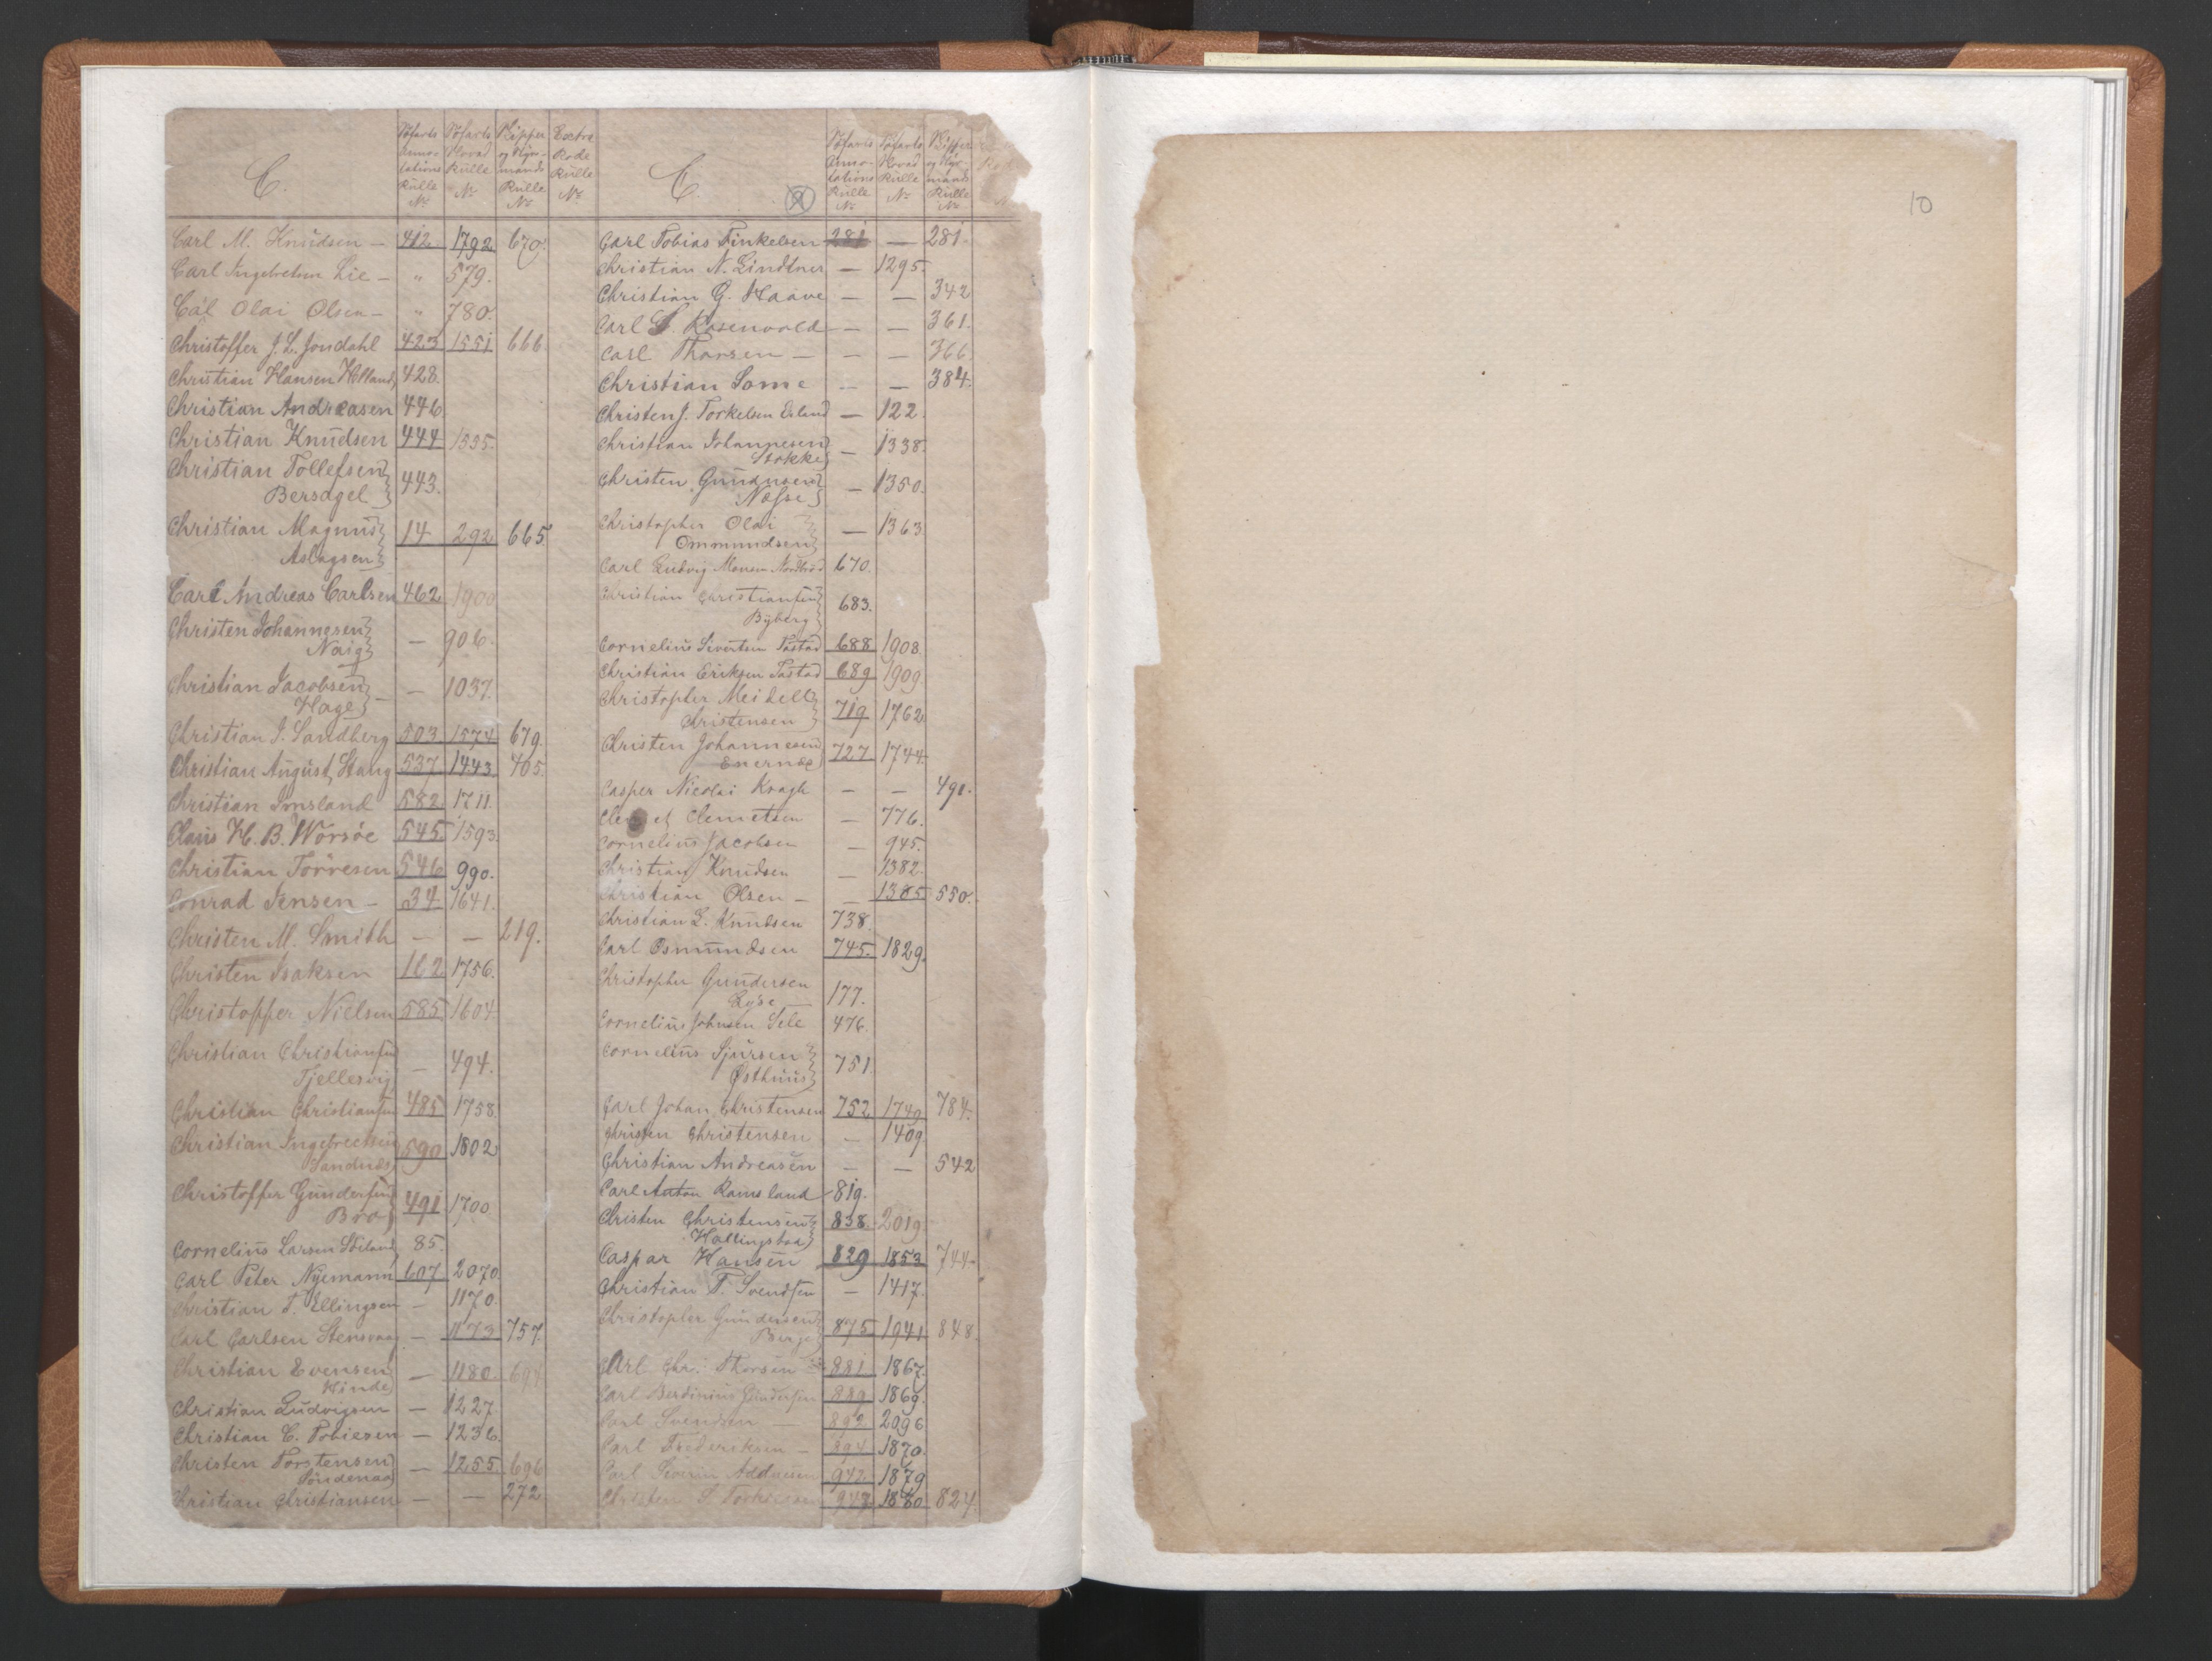 C.
Søfarts Anno- tations Rulle No
Søfarts Hoved Rulle No
Skipper og Styr- mands Rulle No
Extra Rode Rulle No
Carl M. Knudsen – 412. 1792 670.
Carl Ingebretsen Lie – " 579.
Carl Olai Olsen – " 780.
Christoffer J. L. Jondahl 423 1551 666.
Christian Hansen Helland 428.
Christian Andreasen 446
Christian Knudsen 444 1335.
Christian Tollefsen
Bersagel 443.
Christian Magnus 14 292 665.
Aslagsen
Carl Andreas Carlsen 462 1900
Christen Johannesen
Naig – 906.
Christian Jacobsen – 1037.
Hage
Christian J. Sandberg 503 1574 679.
Christian August Stang 537 1443. 405.
Christian Imsland 582 1711.
Claus H. B. Worsöe 545 1593
Christian Torresen 546 990.
Conrad Jensen – 34 1641.
Christen M. Smith – – 219.
Christen Isaksen 162 1756.
Christopher Nielsen 585 1604
Christian Christiansen
Tjellesvig – 494.
Christian Christiansen 485 1758
Christian Ingebretsen 590 1802
Sandnæs
Christoffer Gundersen
Bro 491 1700
Cornelius Larsen 85.
Carl Peter Nyemann 607 2070.
Christian T. Ellingsen – 1170.
Carl Carlsen Stensvaag – 1173 757.
Christian Evensen – 1180.
Hinde
Christian Ludvigsen – 1227
Christian C. Tobiesen – 1236.
Christen Torstensen – 1255. 696
Søndenaa
Kristian Christiansen – – 272
C. 9
Søfarts Anno- tations Rulle No
Søfarts Hoved Rulle No
Skipper og Styr- mands Rulle No
Carl Tobias Finkelsen 281 – 281.
Christian N. Lindtner – 1295.
Christian G. Haave – – 342
Carl S. Rosenvold – – 361.
Carl Thorsen – – – 366.
Christian Lome – – 384.
Christen J. Torkelsen Erland – 122.
Christian Johannesen
Stokke – 1338.
Christen Gundersen
Næsse – 1350.
Christopher Olai
Ommundsen – 1363
Carl Ludvig Monsen 670.
Christian Christiansen
Byberg 683.
Cornelius Sivertsen Tastad 688 1908.
Christian Eriksen Tastad 689 1909
Christopher Meidell
Christensen 719 1762
Christen Johannesen 727 1744.
Enernæs
Casper Nicolai Kragh – – 491.
Clemet Clemetsen – 776.
Cornelius Jacobsen – 945.
Christian Knudsen – 1382.
Christian Olsen – – 1385 550.
Christian L. Knudsen 738.
Carl Osmundsen 745. 1829.
Christopher Gundersen
Lyse 177.
Cornelius Johnsen Sele 476.
Cornelius Sjursen
Østhuus 751.
Carl Johan Christensen 752 1749 784.
Christen Christensen – 1409
Christian Andreasen – – 542
Carl Anton Ramsland 819.
Christen Christensen 838. 2019
Hallingstad
Caspar Hansen 829 1853 744
Christian T. Svendsen – 1417.
Christopher Gundersen
Berge 875 1941 848.
Carl Chr. Thorsen 881 1867.
Carl Berdinius Gundersen 889 1869.
Carl Svendsen – 892 2096
Carl Frederiksen – 894 1870.
Carl Severin 942 1879
Christen S. 947 1880 824.
10